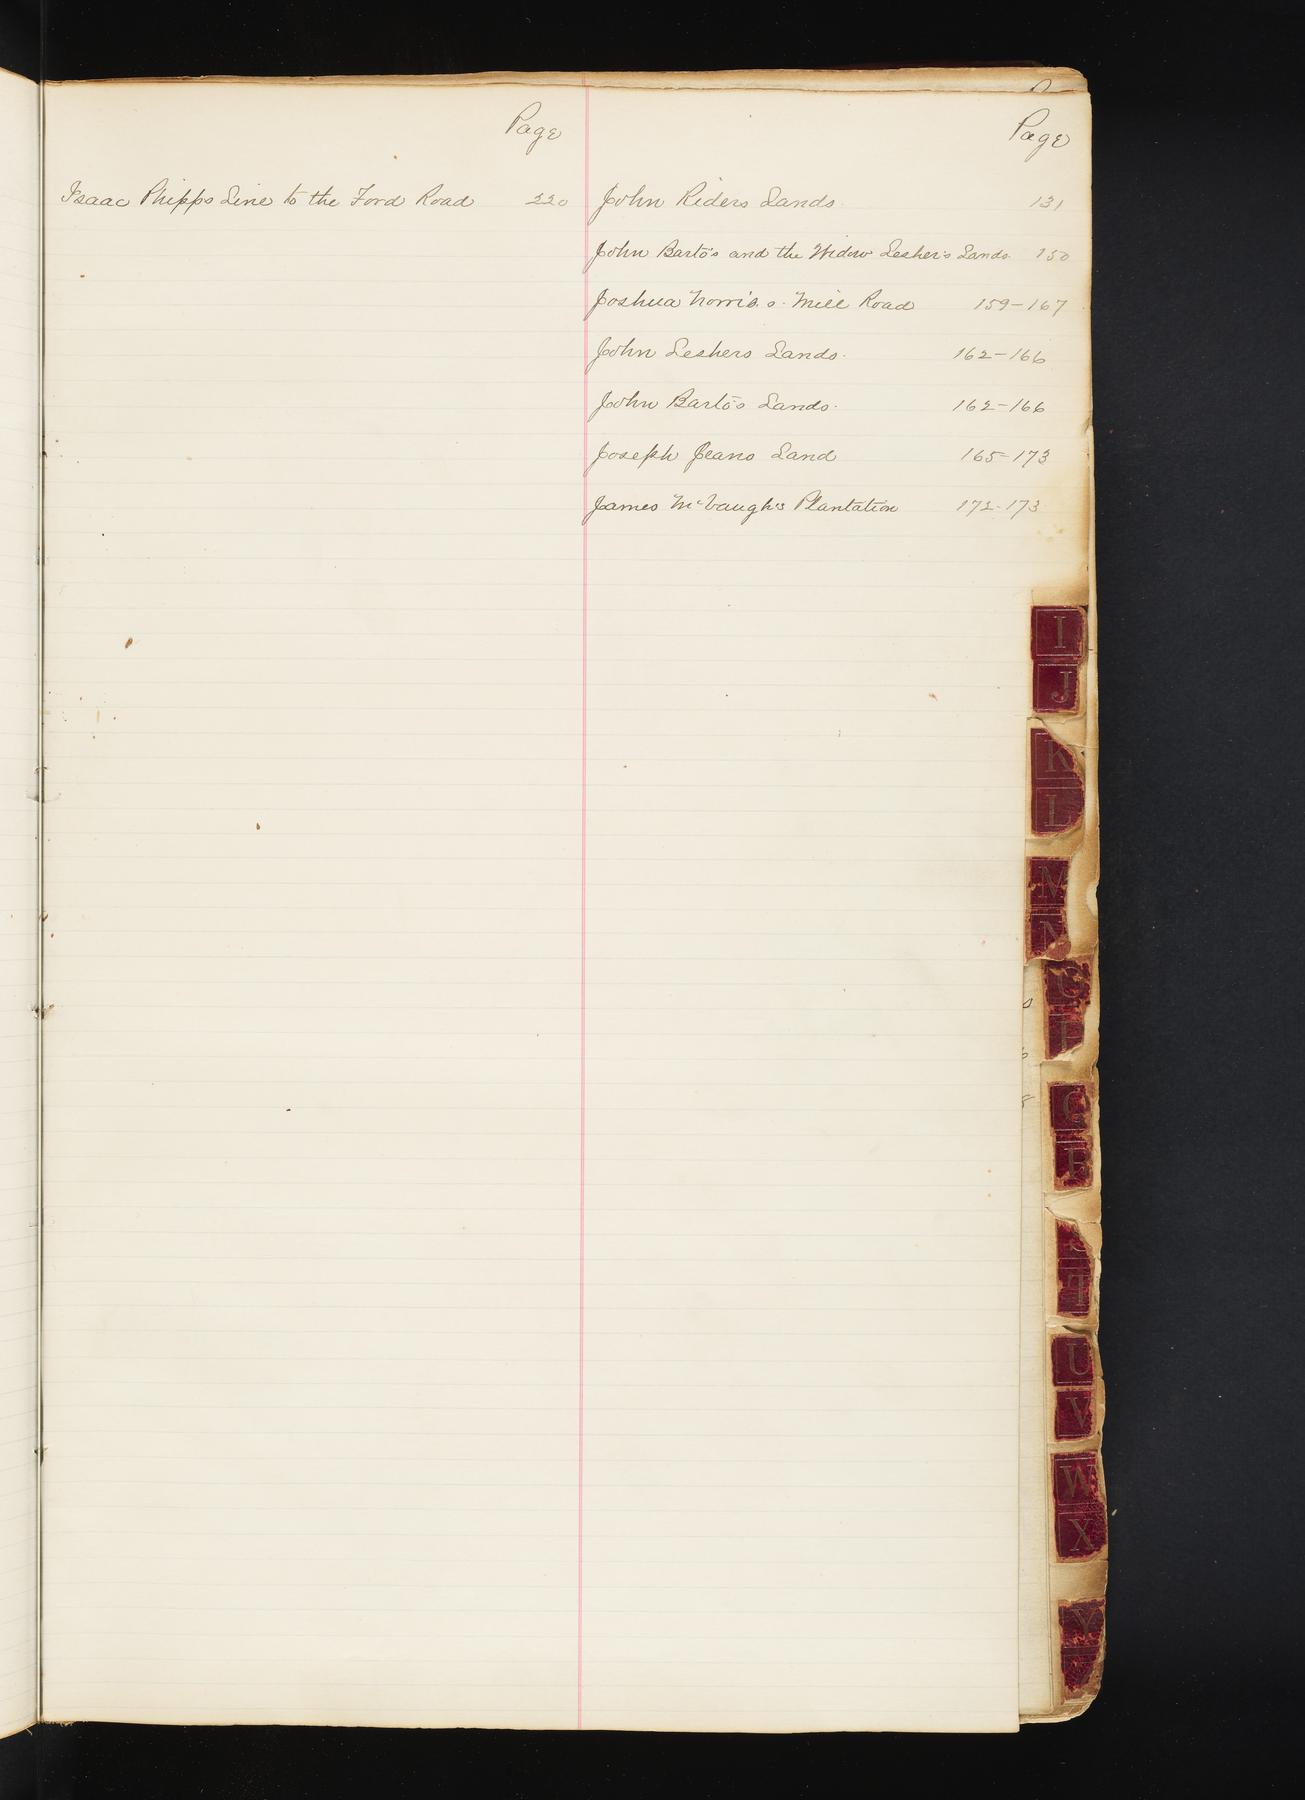 Page
Isaac Phipps Line to the Ford Road 220
Page
John Riders Lands 131
John Barto's and the Widow Lesher's Lands 150
Joshua Norris.s. Mill Road 159-167
John Leshers Lands. 162-166
John Barto's Lands. 162-166
Joseph Jeans Land 165-173
James McVaugh's Plantation 172-173
I
J
K
L
M
N
O
P
Q
R
S
T
U
V
W
X
Y